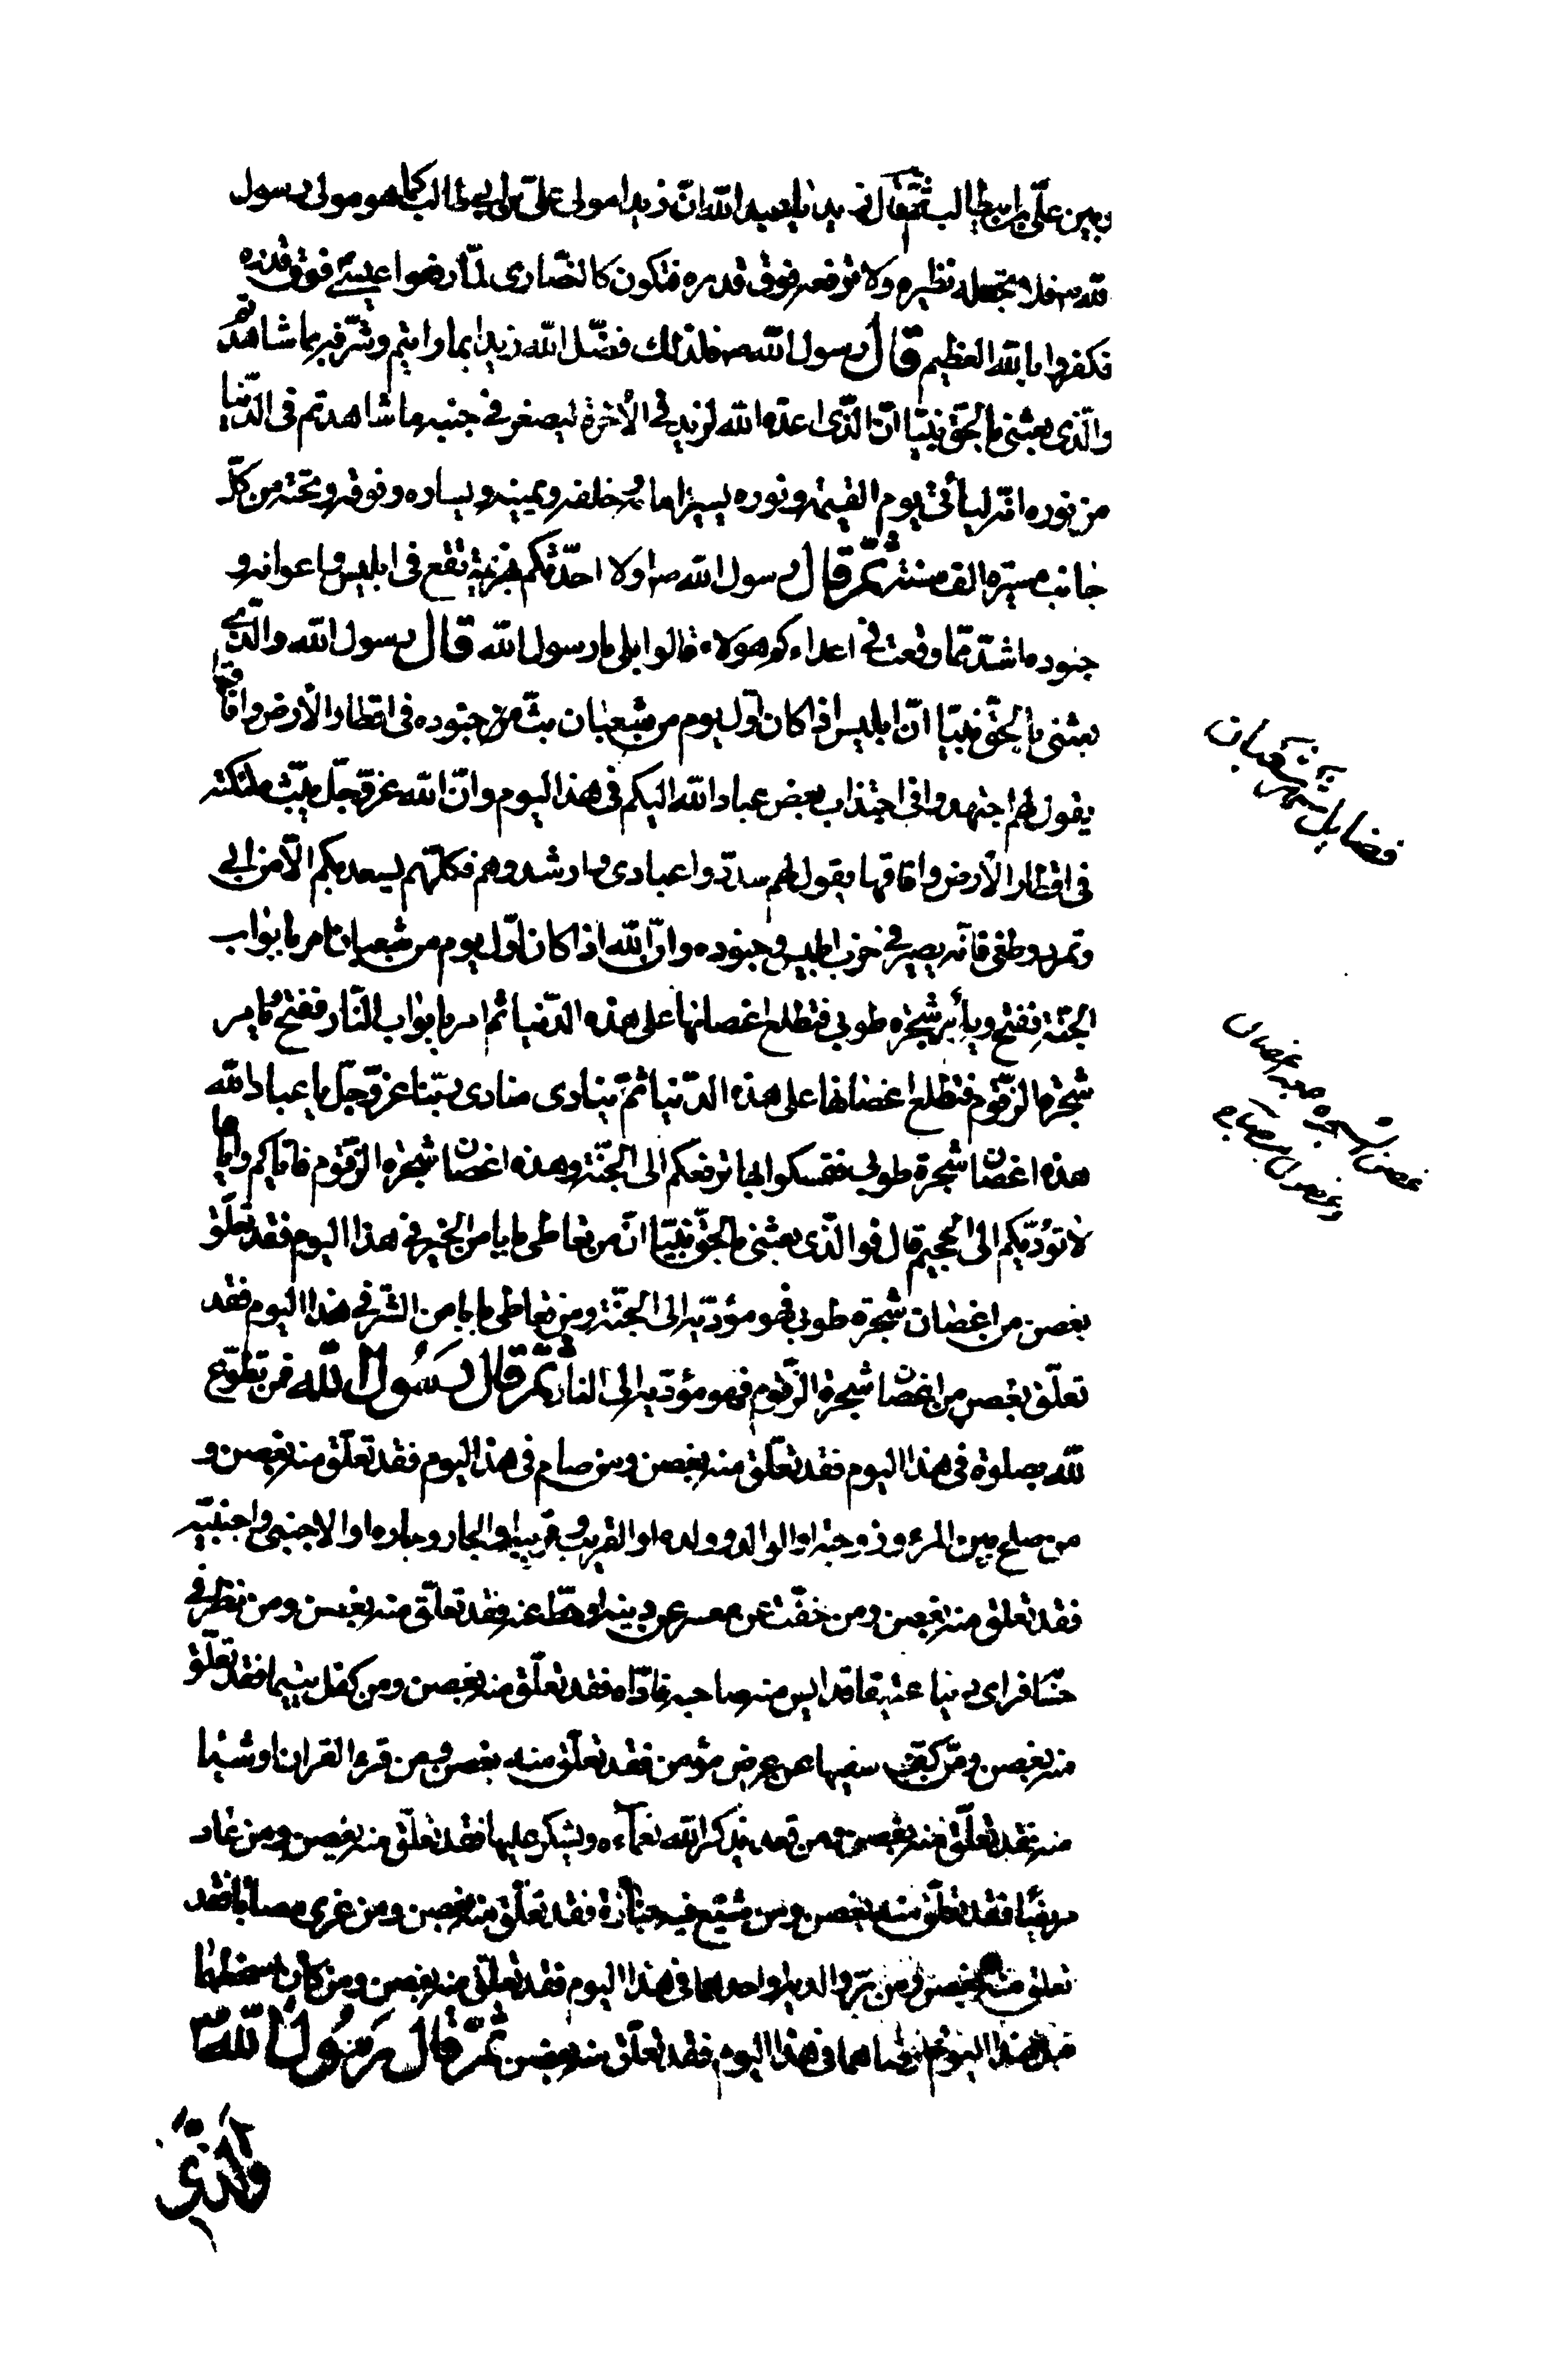 وبين علي بن ابيطالب ثم قال زيد يا عبيد الله انّ زيدا مولى علىّ بن ابي طالب كما هو مولى رسول
الله ص فلا تجعله نظيره ولا ترفعه فوق قدره فتكون كالنصّارى لمّا رفعوا عيسى فوق قدره
فكفروا بالله العظيم قال رسول الله ص فلذلك فضّل الله زيدا بما رايتم وشرّفه بما شاهدتم
والّذى بعثنى بالحقّ نبيّا انّ الّذى اعدّه الله لزيد فى الأخرة ليصغر فى جنبه ما شاهدتم فى الدّنيا
من نوره انّه ليأتى يوم القيمة ونوره يسير امامه وخلفه ويمينه ويساره وفوقه وتحته من كلّ
جانب مسيرة الف سنة ثمّ قال رسول الله ص اولا احدّثكم بهزيمة تقع فى ابليس واعوانه و
جنوده اشدّ ممّا وقعت فى اعداءكم هولاء قالوا بلى يا رسول الله قال رسول الله والّذى
بعثنى بالحقّ نبيّا انّ ابليس اذا كان اوّل يوم من شعبان بثّ جنوده فى اقطار الأرض وافاقها
يقول لهم اجتهدوا فى اجتذاب بعض عباد الله اليكم فى هذا اليوم وانّ الله عزّ وجلّ يبثّ ملئكته
فى اقطار الأرض وافاقها يقول لهم سدّدوا عبادى وارشدوهم فكلّهم يسعد بكم الّا من ابى
وتمرد وطغى فانّه يصير فى حزب ابليس وجنوده وانّ الله اذا كان اوّل يوم من شعبان امر بابواب
الجنّة فتفتح ويأمر شجرة طوبى فتطلع اغصانها على هذه الدّنيا ثم امر بابواب النّار فتفتح ويامر
شجرة الزقّوم فتطلع اغصانها على هذه الدّنيا ثمّ ينادى منادى ربّنا عزّ وجلّ يا عباد الله
هذه اغصان شجرة طوبى فتمسكوا بها ترفعكم الى الجنّة وهذه اغصان شجرة الزقوم فايّاكم وايّاها
لا تؤدّيكم الى الجحيم قال فوالّذى بعثنى بالحقّ نبيّا انّ من تعاطى بابا من الخير فى هذا اليوم فقد تعلّق
بغصن من اغصان شجرة طوبى فهو مؤدّيه الى الجنّة ومن تعاطى بابا من الشّر فى هذا اليوم فقد
تعلّق بغصن من اغصان شجرة الزّقوم فهو مؤدّيه الى النار ثمّ قال رسول الله فمن تطوّع
لله بصلوة فى هذا اليوم فقد تعلّق منه بغصن ومن صام فى هذا اليوم فقد تعلّق منه بغصن و
من صلح بين المرء وزوجته او الوالد وولده او القريب وقريبه او الجار وجاره او الاجنبى واجنبيّه
فقد تعلّق منه بغصن ومن خفّف عن معسر عن دينه او حطّ عنه فقد تعلّق منه بغصن ومن نظر فى
حسّابه فراى دينا عتيقا قد ايس منه صاحبه فادّاه فقد تعلّق منه بغصن ومن كفل يتيما فقد تعلّق
منه بغصن ومن كفّ سفيها عن عرض مؤمن فقد تعلّق منه بغصن ومن قرء القران او شيئا
منه فقد تعلّق منه بغصن ومن قعد يذكر الله ونعمآءه ويشكر عليها فقد تعلّق منه بغصن ومن عاد
مريضا فقد تعلّق منه بغصن ومن شيّع فيه جنازة فقد تعلّق منه بغصن ومن عزى مصابا فقد
تعلّق منه بغصن ومن برّ والديه او احدهما فى هذا اليوم فقد تعلّق منه بغصن ومن كان اسخطهما
قبل هذا اليوم فارضاهما فى هذا اليوم فقد تعلّق منه بغصن ثمّ قال رسول الله ص
والّذى
فضايل شهر شعبان